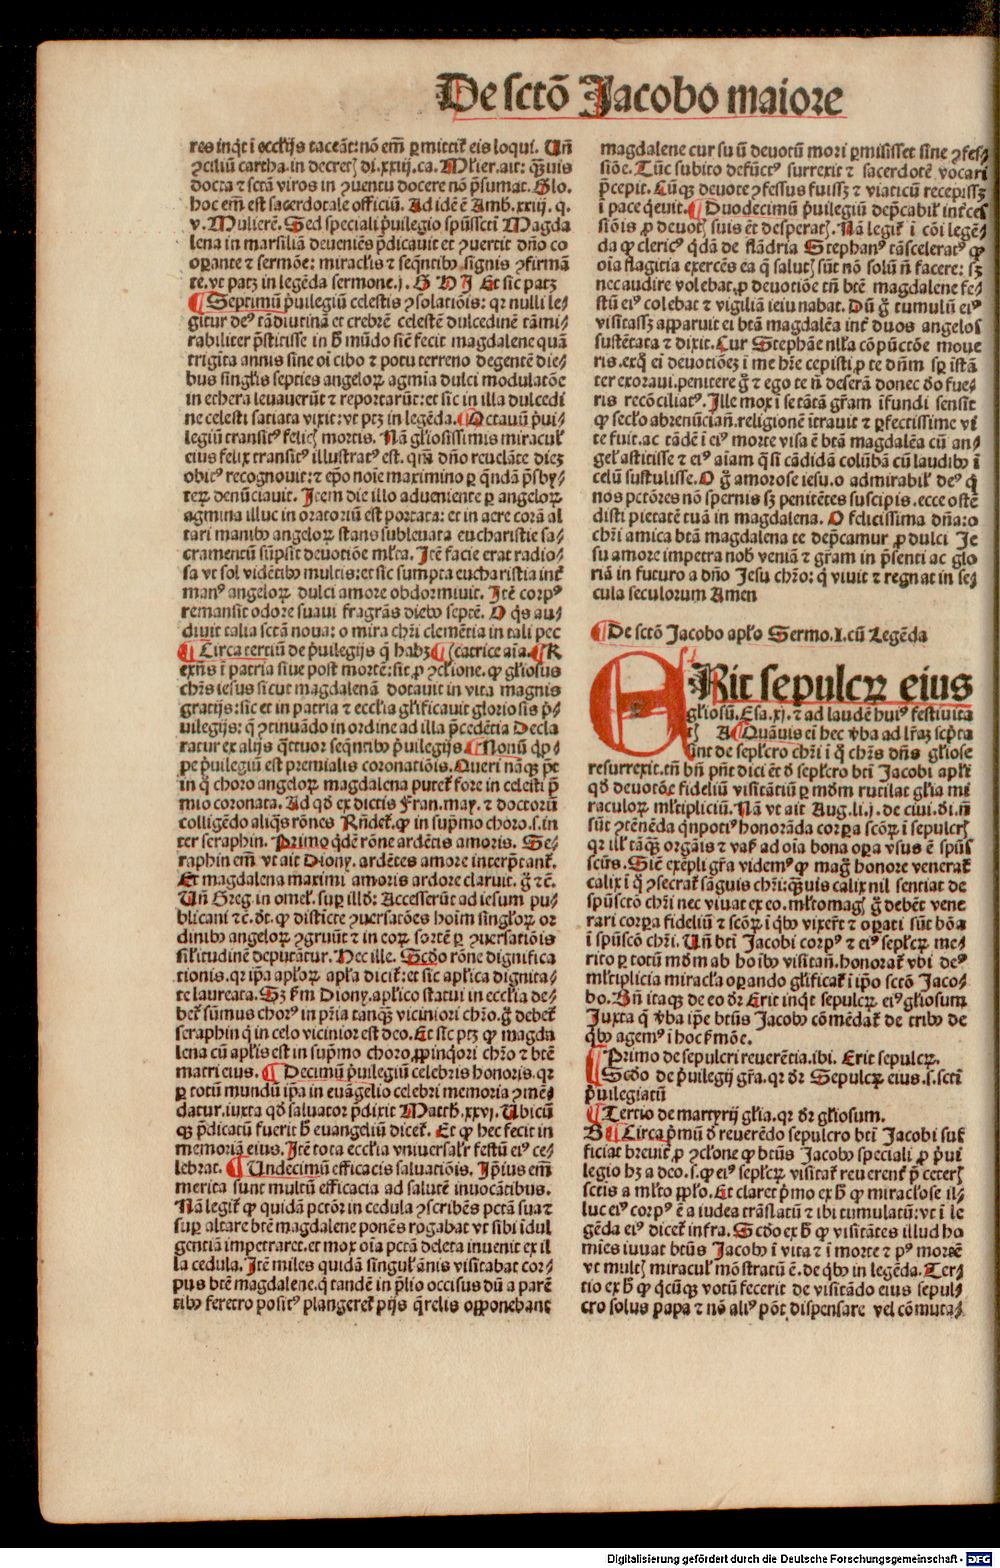 De sctõ Jacobo maiore
res inq̃t ĩ eccl'ijs taceãt: nõ em̃ ꝑmittit̃ eis loqui. Uñ
ꝯciliũ cartha. in decreť di. xxiij. ca. Ml'ier. ait: q̃ꝫuis
docta ⁊ sctã viros in ꝯuentu docere nõ p̃sumat. Glo.
hoc em̃ est sacerdotale officiũ. Ad idẽ ẽ Amb. xxiij. q.
v. Mulierẽ. Sed speciali p̃uilegio spũssctĩ Magda
lena in marsiliã deueniẽs p̃dicauit et ꝯuertit dño co
oꝑante ⁊ sermõe: miracl'is ⁊ seq̃ntibꝰ signis ꝯfirmã
te. vt patꝫ in legẽda sermone. j. Et sic patꝫ
¶ Septimũ p̃uilegiũ celestis ꝯsolatiõis: qꝛ nulli le⸗
gitur deꝰ tãdiutinã et crebrẽ celestẽ dulcedinẽ tãmi⸗
rabiliter p̃stitisse in hͦ mũdo siẽ fecit magdalene quã
triginta annis sine oĩ cibo ⁊ potu terreno degentẽ die⸗
bus singl'is septies angeloꝝ agmĩa dulci modulatõe
in ethera leuauerũt ⁊ reportarũt: et sic in illa dulcedi
ne celesti satiata vixit: vt ptꝫ in legẽda. ¶ Octauũ p̃ui⸗
legiũ transitꝰ felicꝭ mortis. Nã gl'iosissimis miracul'
eius felix transitꝰ illustratꝰ est. qm̃ dño reuelãte dieꝫ
obitꝰ recognouit: ⁊ epõ noĩe maximino ꝑ q̃ndã p̃sby⸗
teꝝ denũciauit. Item die illo adueniente ꝑ angeloꝝ
agmina illuc in oratoriũ est portata: et in aere corã al
tari manibꝰ angeloꝝ stans subleuata eucharistie sa⸗
cramentũ sũpsit deuotiõe ml'ta. Itẽ facie erat radio⸗
sa vt sol vidẽtibꝰ multis: et sic sumpta eucharistia int̃
manꝰ angeloꝝ dulci amore obdormiuit. Itẽ corpꝰ
remansit odore suaui fragrãs diebꝰ septẽ. O q̃s au⸗
diuit talia sctã noua: o mira chr̃i clemẽtia in tali pec
¶ Circa tertiũ de p̃uilegijs q̃ habꝫ ¶ catrice aĩa. ¶ R
exñs ĩ patria siue post mortẽ: sit ꝓ ꝯclione. ꝙ gl'iosus
chr̃s iesus sicut magdalenã dotauit in vita magnis
gratijs: sic et in patria ⁊ eccl'ia gl'ificauit gloriosis p̃⸗
uilegijs: q̃ ꝯtinuãdo in ordine ad illa p̃cedẽtia Decla
ratur ex alijs q̃ttuor seq̃ntibꝰ p̃uilegijs. ¶ Nonũ q̃ꝑ⸗
pe p̃uilegiũ est premialis coronatiõis. Queri nãqꝫ p̃t
in q̃ choro angeloꝝ magdalena putet̃ fore in celesti p̃
mio coronata. Ad qd̃ ex dictis Fran. may. ⁊ doctorũ
colligẽdo aliq̃s rõnes Rñdet̃. ꝙ in sup̃mo choro. s. in
ter seraphin. Primo q̃dẽ rõne ardẽtis amoris. Se⸗
raphin em̃ vt ait Diony. ardẽtes amore interp̃tant̃.
Et magdalena maximi amoris ardore claruit. g̃ ⁊c̃.
Uñ Greg. in omel'. suꝑ illd̃: Accesserũt ad iesum pu⸗
blicani ⁊c̃. d̃t. ꝙ distĩcte ꝯuersatões hoĩm singl'oꝝ or
dinibꝰ angeloꝝ ꝯgruũt ⁊ in eoꝝ sortẽ ꝑ ꝯuersatiõis
sil'itudinẽ deputãtur. Hec ille. Scd̃o rõne dignifica
tionis. qꝛ ip̃a apl'oꝝ apl'a dicit̃: et sic apl'ica dignita⸗
te laureata. Sꝫ s̃m Diony. apl'ico statui in eccl'ia de⸗
bet̃ sũmus chorꝰ in pr̃ia tanq̃ꝫ viciniori chr̃o. g̃ debet̃
seraphin q̃ in celo vicinior est deo. Et sic ptꝫ ꝙ magda
lena cũ apl'is est in sup̃mo choro, ꝓpinq̃ori chr̃o ⁊ btẽ
matri eius. ¶ Decimũ p̃uilegiũ celebris honoris. qꝛ
ꝑ totũ mundũ ip̃a in euãgelio celebri memoria ꝯmẽ⸗
datur. iuxta qd̃ saluator p̃dixit Matth. xxvj. Ubicũ
qꝫ p̃dicatũ fuerit hͦ euangeliũ dicet̃. Et ꝙ hec fecit in
memoriã eius. Itẽ tota eccl'ia vniuersal'r festũ eiꝰ ce⸗
lebrat. ¶ Undecimũ efficacis saluatiõis. Ip̃ius em̃
merita sunt multũ efficacia ad salutẽ inuocãtibus.
Nã legit̃ ꝙ quidã pctõr in cedula ꝯscribẽs pctã sua ⁊
suꝑ altare btẽ magdalene ponẽs rogabat vt sibi ĩdul
gentiã impetraret. et mox oĩa pctã deleta inuenit ex il
la cedula. Itẽ miles quidã singul' ãnis visitabat cor⸗
pus btẽ magdalene. q̃ tandẽ in p̃lio occisus dũ a parẽ
tibꝰ feretro positꝰ plangeret̃ pijs q̃relis oppone bant
magdalene cur su ũ deuotũ mori ꝑmisisset sine ꝯfes⸗
siõe. Tũc subito defũctꝰ surrexit ⁊ sacerdotẽ vocari
p̃cepit. Cũqꝫ deuote ꝯfessus fuissꝫ ⁊ viaticũ recepissꝫ
ĩ pace q̃euit. ¶ Duodecimũ p̃uilegiũ dep̃cabil' int̃ces
siõis ꝓ deuotꝭ suis ẽt desperatꝭ. Nã legit̃ ĩ cõi legẽ⸗
da ꝙ clericꝰ q̃dã de flãdria Stephanꝰ tã sceleratꝰ ꝙ
oĩa flagitia exercẽs ea q̃ salutꝭ sũt nõ solũ ñ facere: sꝫ
nec audire volebat, ꝓ deuotiõe tñ btẽ magdalene fe⸗
stũ eiꝰ colebat ⁊ vigiliã ieiunabat. Dũ g̃ tumulũ eiꝰ
visitassꝫ apparuit ei btã magdalẽa int̃ duos angelos
sustẽtata ⁊ dixit. Cur Stephãe nll'a cõpũctõe moue
ris. exq̃ ei deuotiõeꝫ ĩ me hr̃e cepisti, ꝓ te dñm sꝑ istã
ter exoraui. penitere g̃ ⁊ ego te ñ deserã donec d̃o fue⸗
ris recõciliatꝰ. Ille mox ĩ se tãtã gr̃am ĩfundi sensit
ꝙ secl'o abrenũciañ. religionẽ ĩtrauit ⁊ ꝑfectissime vi
te fuit. ac tãdẽ ĩ eiꝰ morte visa ẽ btã magdalẽa cũ an⸗
gel' astitisse ⁊ eiꝰ aĩam q̃si cãdidã colũbã cũ laudibꝰ ĩ
celũ sustulisse. O g̃ amorose iesu. o admirabil' deꝰ q̃
nos pctõres nõ spernis sꝫ penitẽtes suscipis. ecce ostẽ
disti pietatẽ tuã in magdalena. O felicissima dña: o
chr̃i amica btã magdalena te dep̃camur ꝓ dulci Je
su amore impetra nob̃ veniã ⁊ gr̃am in p̃senti ac glo
riã in futuro a dño Jesu chr̃o: q̃ viuit ⁊ regnat in se⸗
cula seculorum Amen
¶ De sctõ Jacobo apl'o Sermo. I. cũ Legẽda
ERit sepulcꝝ eius
gl'iosũ. Esa. xj. ⁊ ad laudẽ huiꝰ festiuita
tꝭ A ¶ Quãuis ei hec v̾ba ad lr̃aꝫ scp̃ta
sint de sepl'cro chr̃i ĩ q̃ chr̃s dñs gl'iose
resurrexit. tñ bñ pñt dici ẽt d̾ sepl'cro btĩ Jacobi apl'i
qd̃ deuotõe fideliũ visitãtiũ ꝑ mũdũ rutilat gl'ia mi
raculoꝝ ml'tipliciũ. Nã vt ait Aug. li. j. de ciui. d̾i. ñ
sũt ꝯtẽnẽda q̃npotiꝰ honorãda corpꝑa scõꝝ ĩ sepulcrꝭ
qꝛ ill' tãqꝫ orgãis ⁊ vas' ad oĩa bona oꝑa vsus ẽ spũs
scũs. Siẽ exẽpli gr̃a videmꝰ ꝙ mag̃ honore venerat̃
calix ĩ q̃ ꝯsecrat̃ sãguis chr̃i: q̃ꝫuis calix nil sentiat de
spũsctõ chr̃i nec viuat ex eo. ml'tomagꝭ g̃ debẽt vene
rari corpꝑa fideliũ ⁊ scõꝝ ĩ q̃bꝰ vixer̃t ⁊ oꝑati sũt bõa
ĩ spũscõ chr̃i. Uñ btĩ Jacobi corpꝰ ⁊ eiꝰ sepl'cꝝ me⸗
rito ꝑ totũ mũdũ ab hoĩbꝰ visitañ. honorat̃ vbi deꝰ
ml'tiplicia miracl'a oꝑando gl'ificat̃ ĩ ip̃o sctõ Jaco⸗
bo. Uñ itaqꝫ de eo dr̃ Erit inq̃t sepulcꝝ eiꝰ gl'iosum
Juxta q̃ v̾ba ip̃e btũs Jacobꝰ cõmẽdat̃ de tribꝰ de
q̃bꝰ agemꝰ ĩ hoc s̾mõe.
¶ Primo de sepulcri reuerẽtia. ibi. Erit sepulcꝝ.
¶ Scd̃o de p̃uilegij gr̃a. qꝛ dr̃ Sepulcꝝ eius. s. sctĩ
p̃uilegiatũ
¶ Tertio de martyrij gl'ia. qꝛ dr̃ gl'iosum.
B ¶ Circa p̃mũ d̾ reuerẽdo sepulcro btĩ Jacobi suf⸗
ficiat breuit̃ ꝓ ꝯclone ꝙ btũs Jacobꝰ speciali ꝓ p̃ui
legio hꝫ a deo. s. ꝙ eiꝰ sepl'cꝝ visitat̃ reuerent̃ p̃ ceterꝭ
sctis a ml'to ppl'o. Et claret p̃mo ex hͦ ꝙ miracl'ose il⸗
luc eiꝰ corpꝰ ẽ a iudea trãslatũ ⁊ ibi tumulatũ: vt ĩ le
gẽda eiꝰ dicet̃ infra. Scd̃o ex hͦ ꝙ visitãtes illud ho
mĩes iuuat btũs Jacobꝰ ĩ vita ⁊ ĩ morte ⁊ pꝰ mortẽ
vt multꝭ miracul' mõstratũ ẽ. de q̃bꝰ in legẽda. Ter⸗
tio ex hͦ ꝙ q̃cũqꝫ votũ fecerit de visitãdo eius sepul⸗
cro solus papa ⁊ nõ aliꝰ põt dispensare vel cõmuta⸗
Digitalisierung gefördert durch die Deutsche Forschungsgemeinschaft - DFG